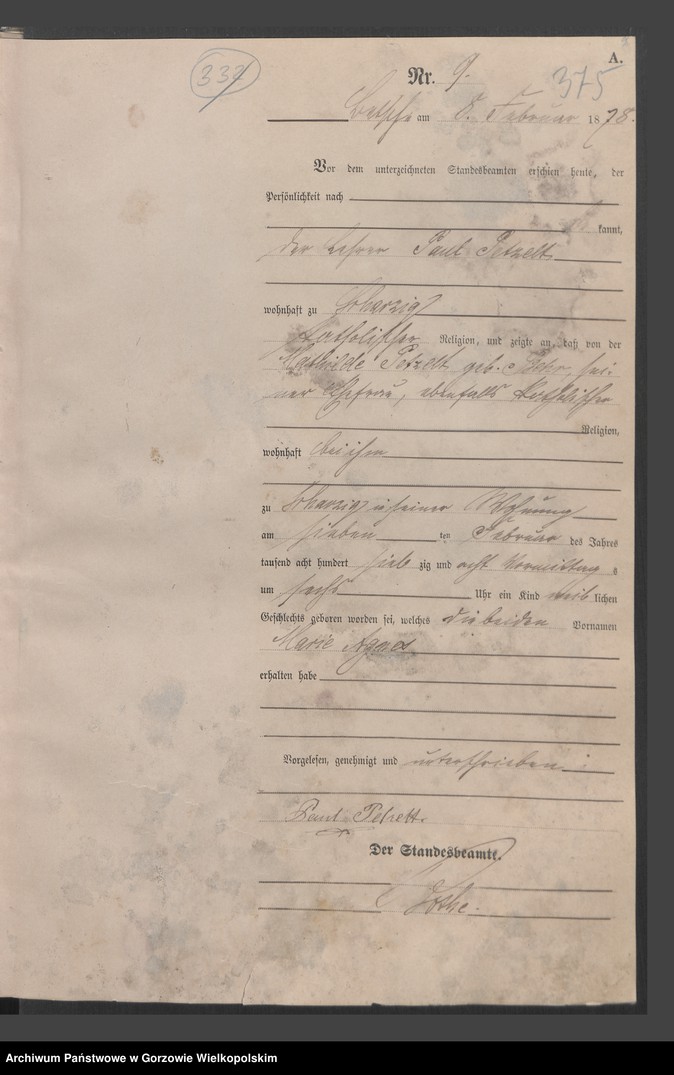 A.
337
Nr. 9.
375
Betsche am 8. Februar 1878.
Vor dem unterzeichneten Standesbeamten erschien heute, der
Persönlichkeit nach
kannt,
der Lehrer Paul Petzelt
wohnhaft zu
katholischer Religion, und zeigte an, daß von der
Mathilde Petzelt geb. sei-
ner Ehefrau, ebenfalls katholischer
Religion,
wohnhaft bei ihm
zu in seiner Wohnung
am sieben ten Februar des Jahres
tausend acht hundert sieb zig und acht Vormittag s
um sechs Uhr ein Kind weib lichen
Geschlechts geboren worden sei, welches die beiden Vornamen
Marie Agnes
erhalten habe
Vorgelesen, genehmigt und unterschrieben:
Paul Petzelt.
Der Standesbeamte.
Archiwum Państwowe w Gorzowie Wielkopolskim